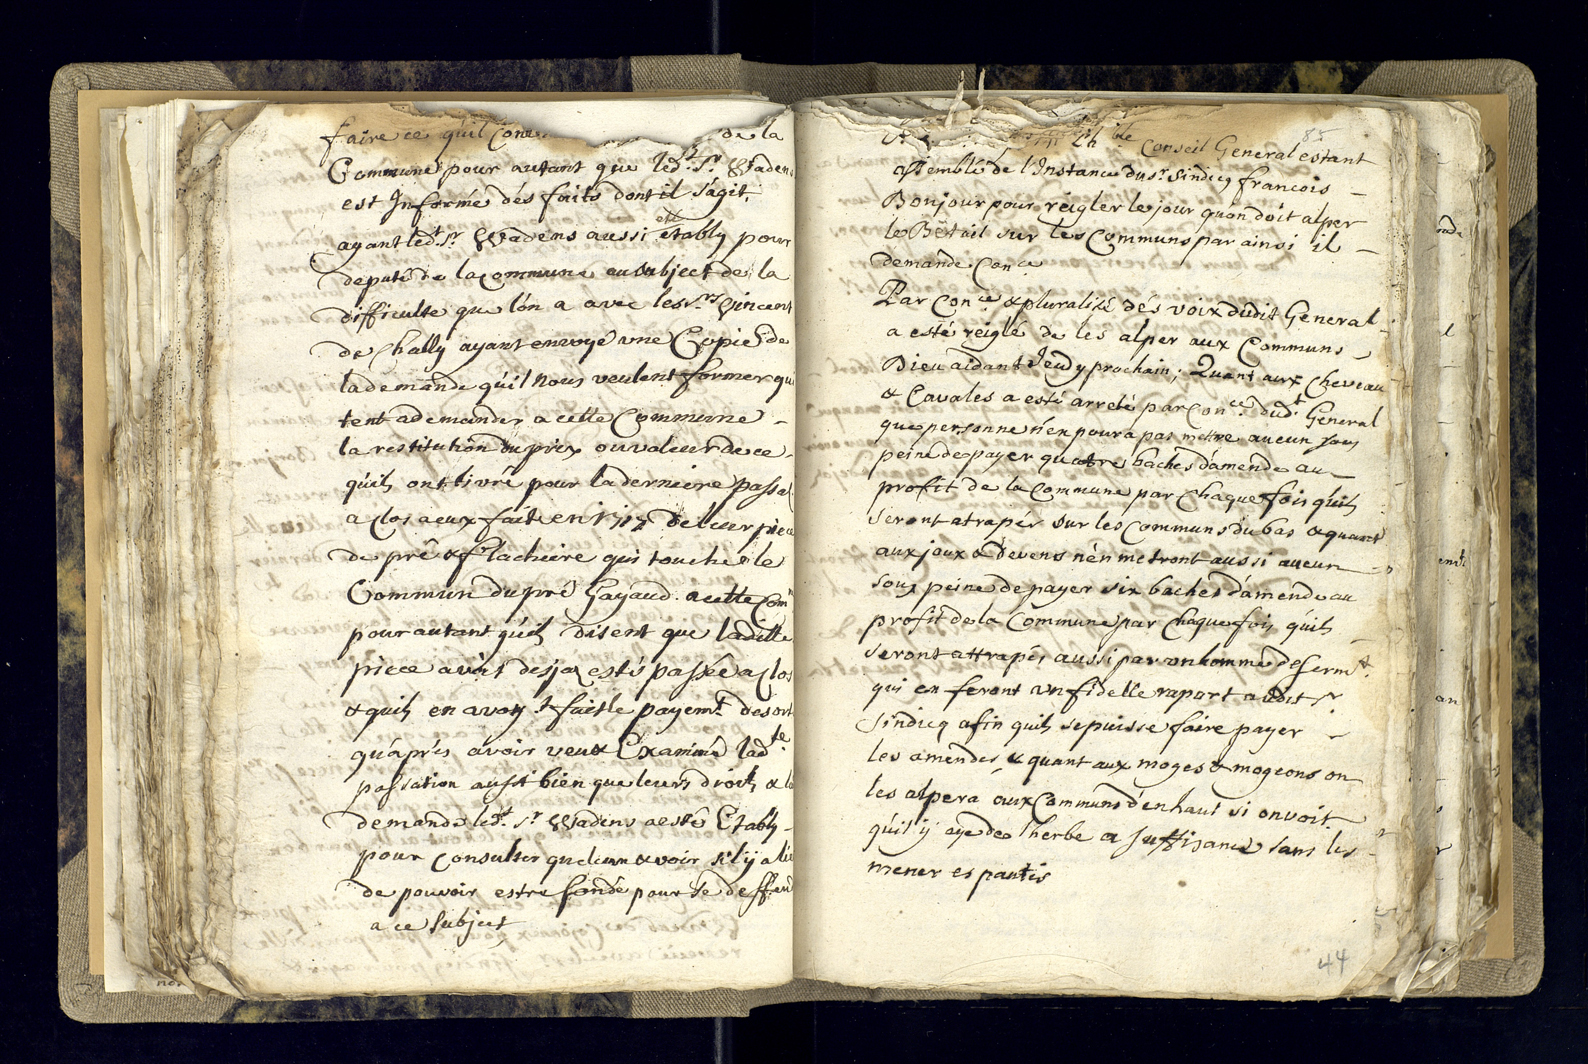 faire ce qu'il Conv de la
Commune pour autant que led.t S.r Wadens
est Informé dés faits dont il s'agit,
ayant led.t S.r Wadens aussi esté étably pour
deputé de la Commune au Subject de la
difficulte que lón a avec les S.rs Vincent
de Chally ayant envoyé une Copie de
la demande qu'il nous veulent former qui
tent a demander a cette Commune
la restitution du prix ou valeur de ce
qu'ils ont livré pour la derniere passa
a Clos a eux fait en de leur piece
de pré & flachiere qui touche le
Commun du pré Gayaud a cette Com
pour autant qu'ils disent que ladille
piece avoit desja esté passée a Clos
& qu'ils en avoy.t fait le payem.t desort
qu'aprés avoir veu & Examiné lad.te
passation aussi bien que leurs droits & la
demande led.t S.r Wadens a esté Etably
pour Consulter quelcun & voir s'il y a lie
de pouvoir estre fondé pour se deffend
a ce Subject
85
Conseil General estant
assemblé de l'Instance du S.r Sindicq francois
Bonjour pour réigler le jour qu'on doit alper
le Bétail sur les Communs par ainsi il
demande Con.ce
Par Con.ce & pluralité dés voix dudit General
a esté réiglé de les alper aux Communs
Dieu aidant Jeudy prochain; Quant aux Cheveau
& Cavales a esté arreté par Con.ce dud.t General
que personne n'en poura pas mettre aucun sous
peine de payer quattre baches d'amende au
profit de la Commune par Chaque fois qu'ils
seront atrapér sur les Communs du bas & quant
aux joux & devens n'en metront aussi aucun
soux peine de payer six baches d'amende au
profit de la Commune par Chaque fois qu'ils
seront attrapés aussi par un homme de serm.t
qui en feront un fidelle raport audit S.r
Sindicq afin qu'ils se puisse faire payer
les amendes, & quant aux moges & mogeons on
les alpera aux Communs d'enhaut si on voit
qu'il y aye de l'herbe a suffisance sans les
mener es pantis
44